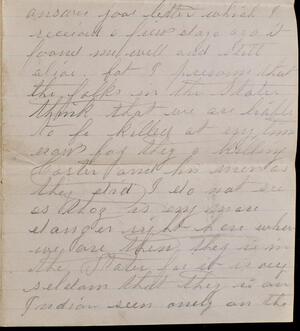 answer your letter which I
received a few days ago it
found me well and still
alive, but I presume that
the folks in the States
think that we are liable
to be killed at any time
now by they a killing
Custer and his men as
they did I do not see
as thoz is any more
danger right here where
we are then they is in
the States for it is very
seldom that they is an
Indian seen only on the